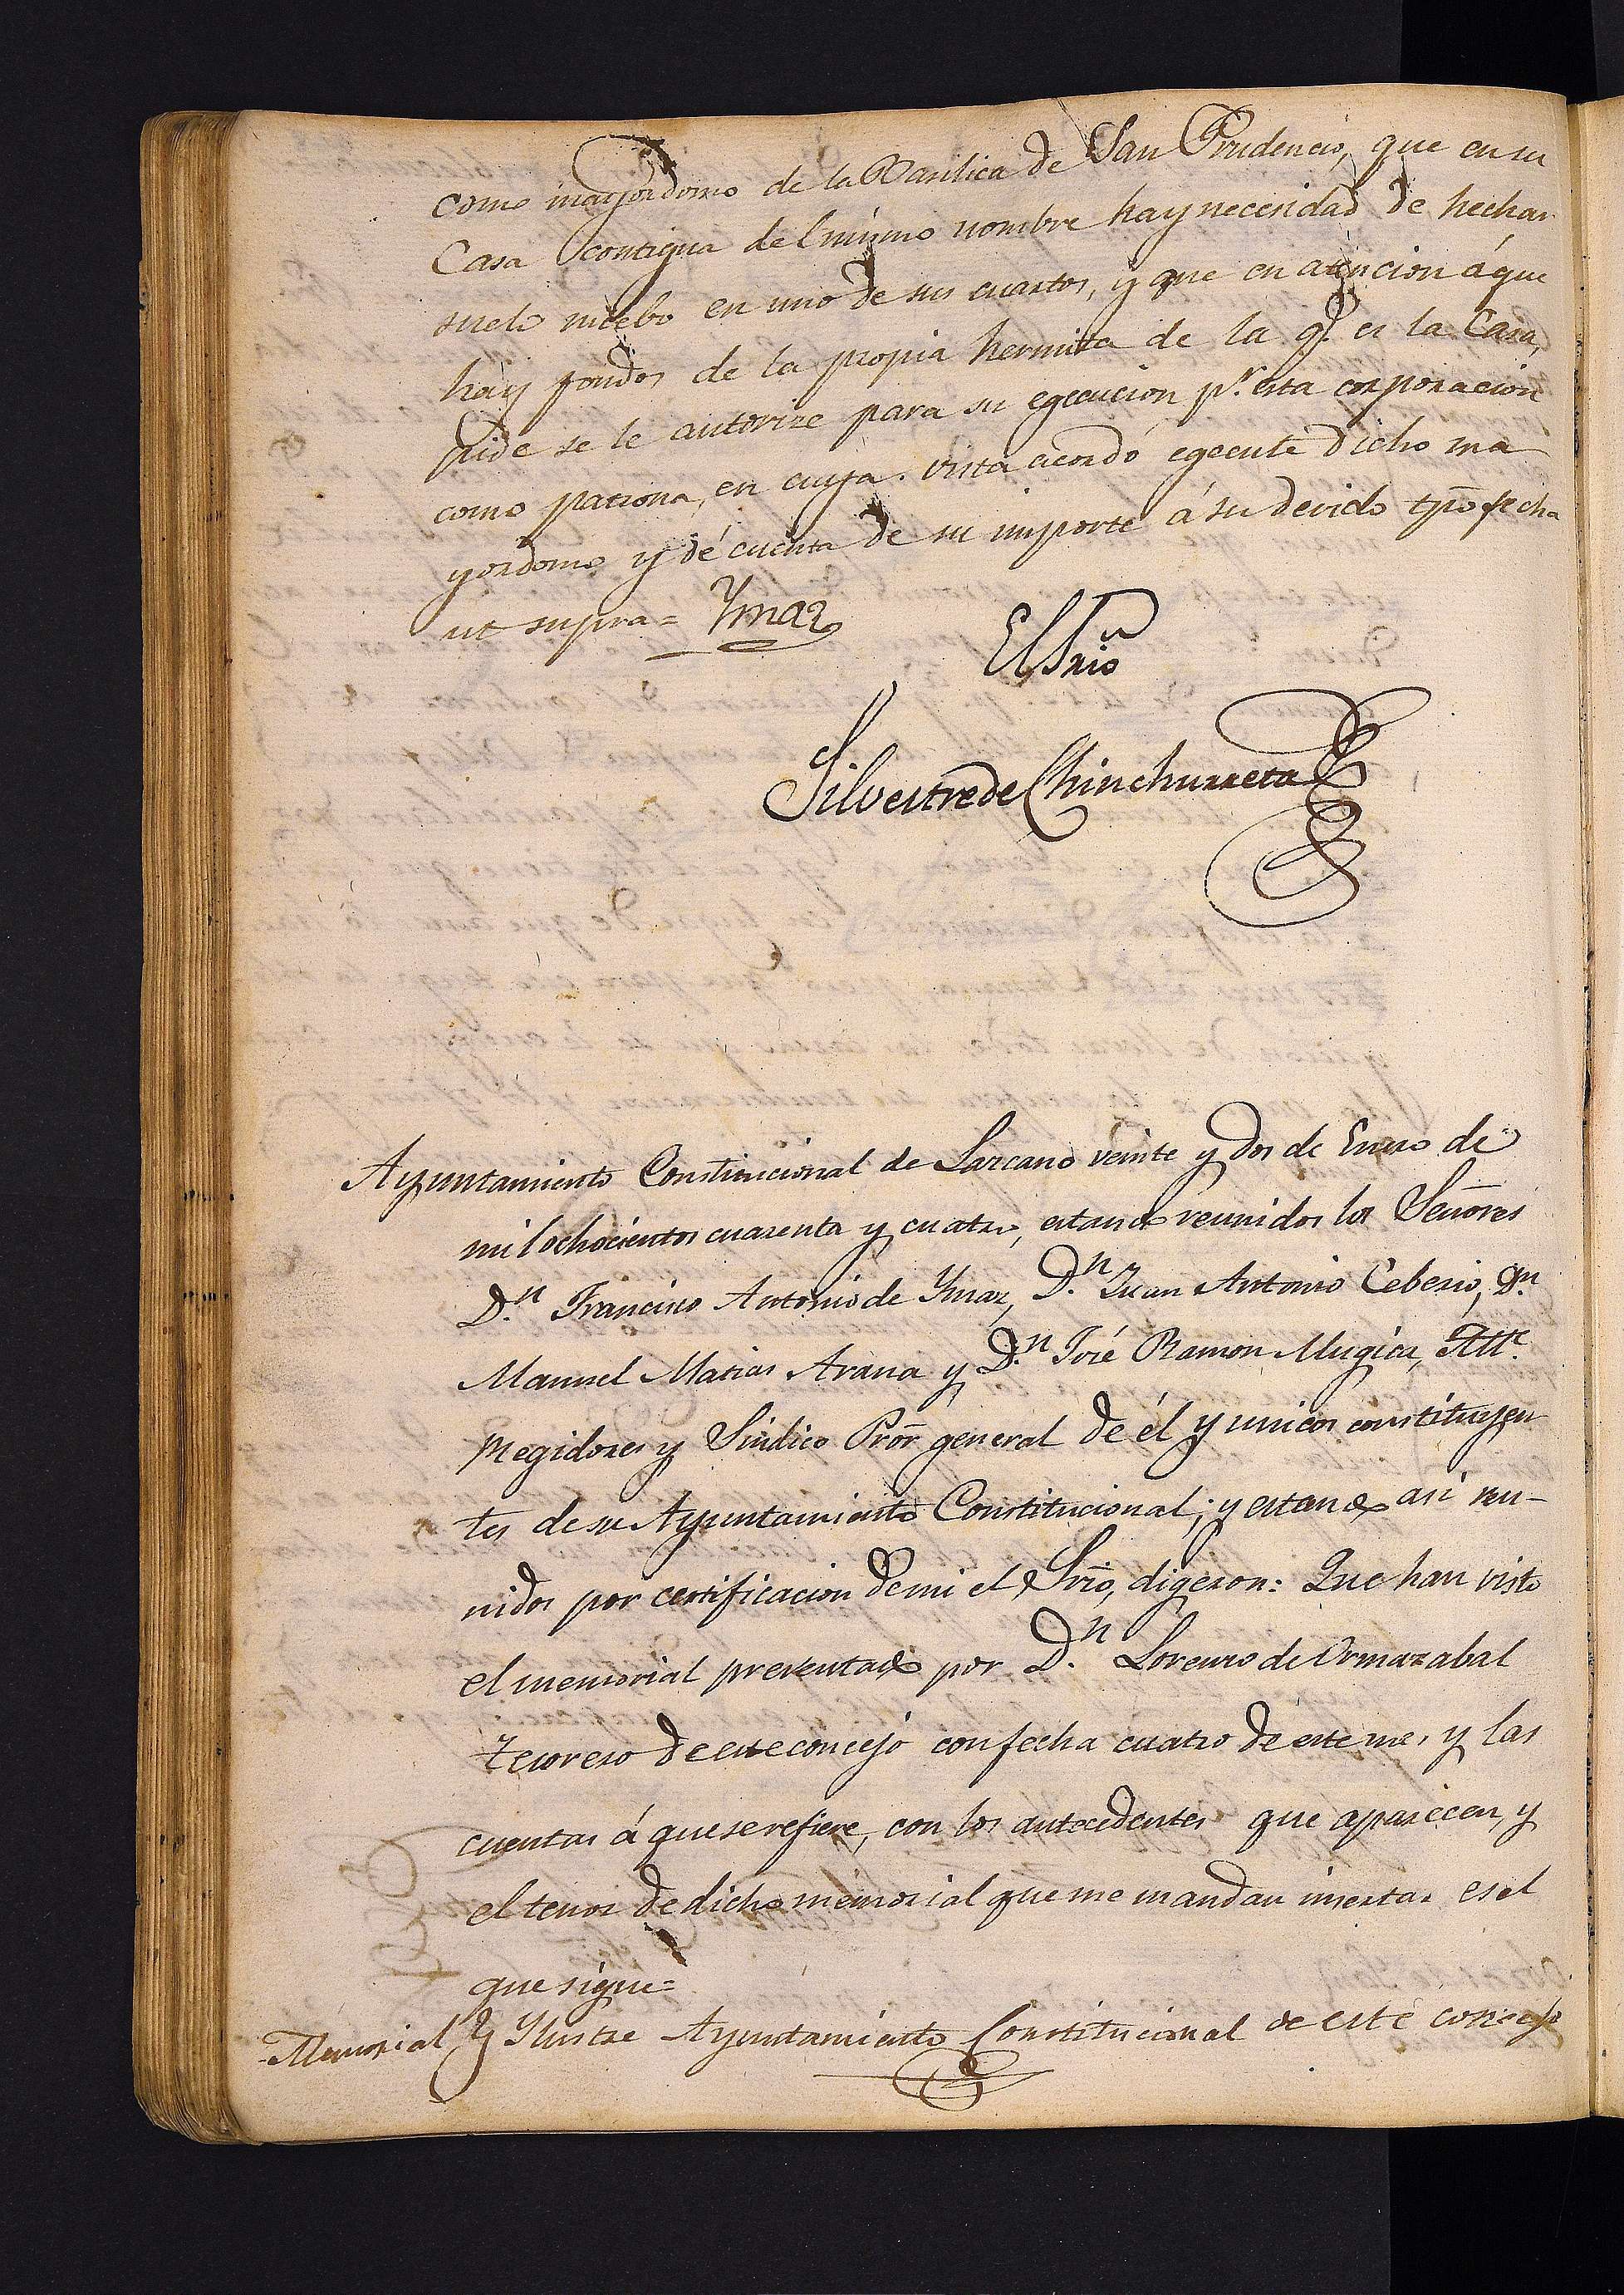 como mayordomo de la Basilica de San Prudencio, que en su
Casa contigua del mismo nombre hay necesidad de hechar
suelo nuebo en uno de sus cuartos, y que en atencion á que
hay fondos de la propia hermita de la q.e es la Casa,
pide se le autorize para su egecucion p.r esta corporacion
como patrona, en cuya vista acordó egecute dicho ma
yordomo y dé cuenta de su importe á su devido tpõ fecha
ut supra = Ymaz
El Srio
Silvestre de Chinchurreta
Ayuntamiento Constitucional de Lazcano veinte y dos de Enero de
mil ochocientos cuarenta y cuatro, estando reunidos los Señores
D.n Francisco Antonio de Ymaz, D.n Juan Antonio Ceberio, D.n
Manuel Matias Arana y D.n José Ramon Mugica, Alc.e
Regidores y Sindico Prõr general de él y unicos constituyen
tes de su Ayuntamiento Constitucional; y estando asi reu-
nidos por certificacion de mi el Srio, digeron: Que han visto
el memorial presentado por D.n Lorenzo de Ormazabal
tesorero de este concejo con fecha cuatro de este mes, y las
cuentas á que se refiere, con los antecedentes que aparecen, y
el tenor de dicho memorial que me mandan insertar es el
que sigue =
Memorial Ylustre Ayuntamiento Constitucional de este concejo